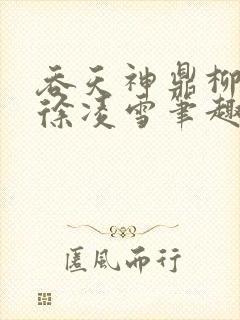 吞天神鼎柳
徐凌雪笔趣
匿风而行